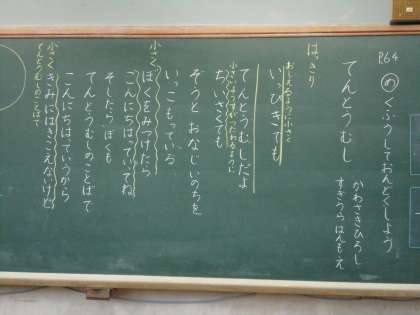 P.64
め くふうしておんどくしよう
てんとうむし
かわさきひろし
はっきり
おしえるように小さく
いっぴきでも
てんとうむしだよ
小さいようすがつたわるように
ちいさくても
ぞうと おなじいのちを
いっこもっている
小さく
ぼくをみつけたら
こんにちはっていってね
そしたら ぼくも
てんとうむしのことばで
こんにちはっていうから
きみにはきこえないけど
小さく
てんとうむしのことばで